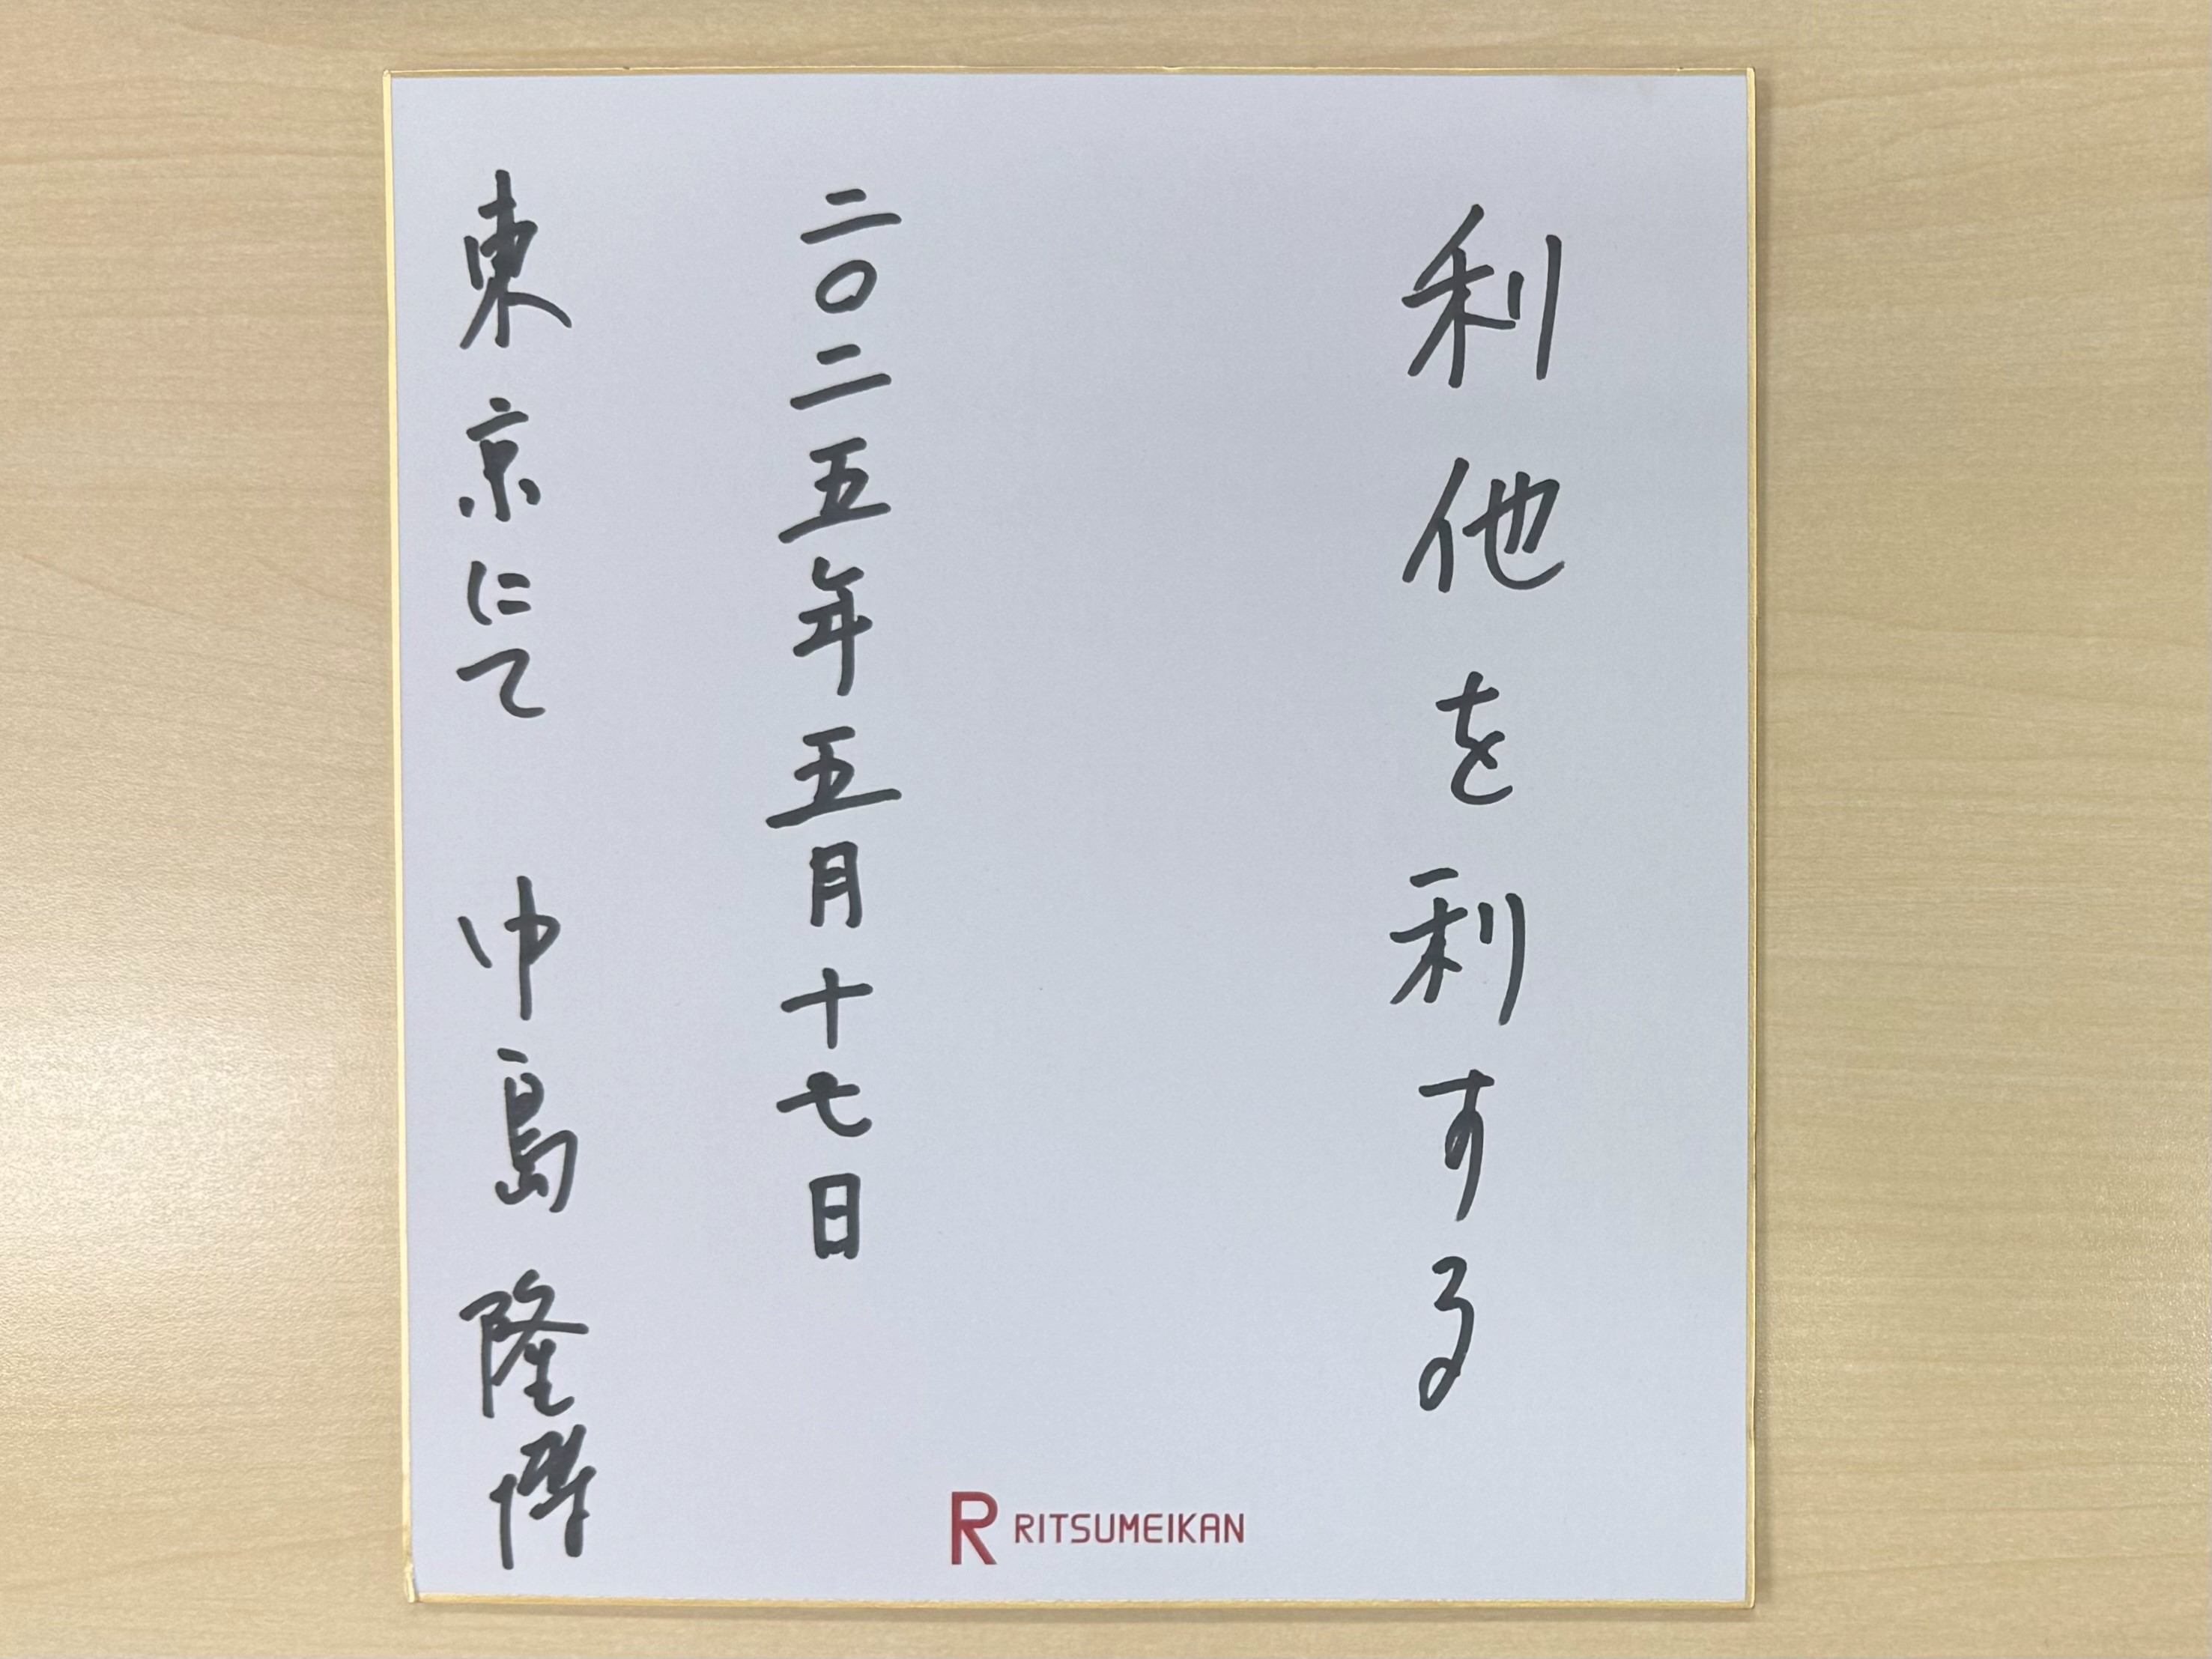 利他を利する
二〇二五年五月十七日
東京にて 中島隆博
R RITSUMEIKAN